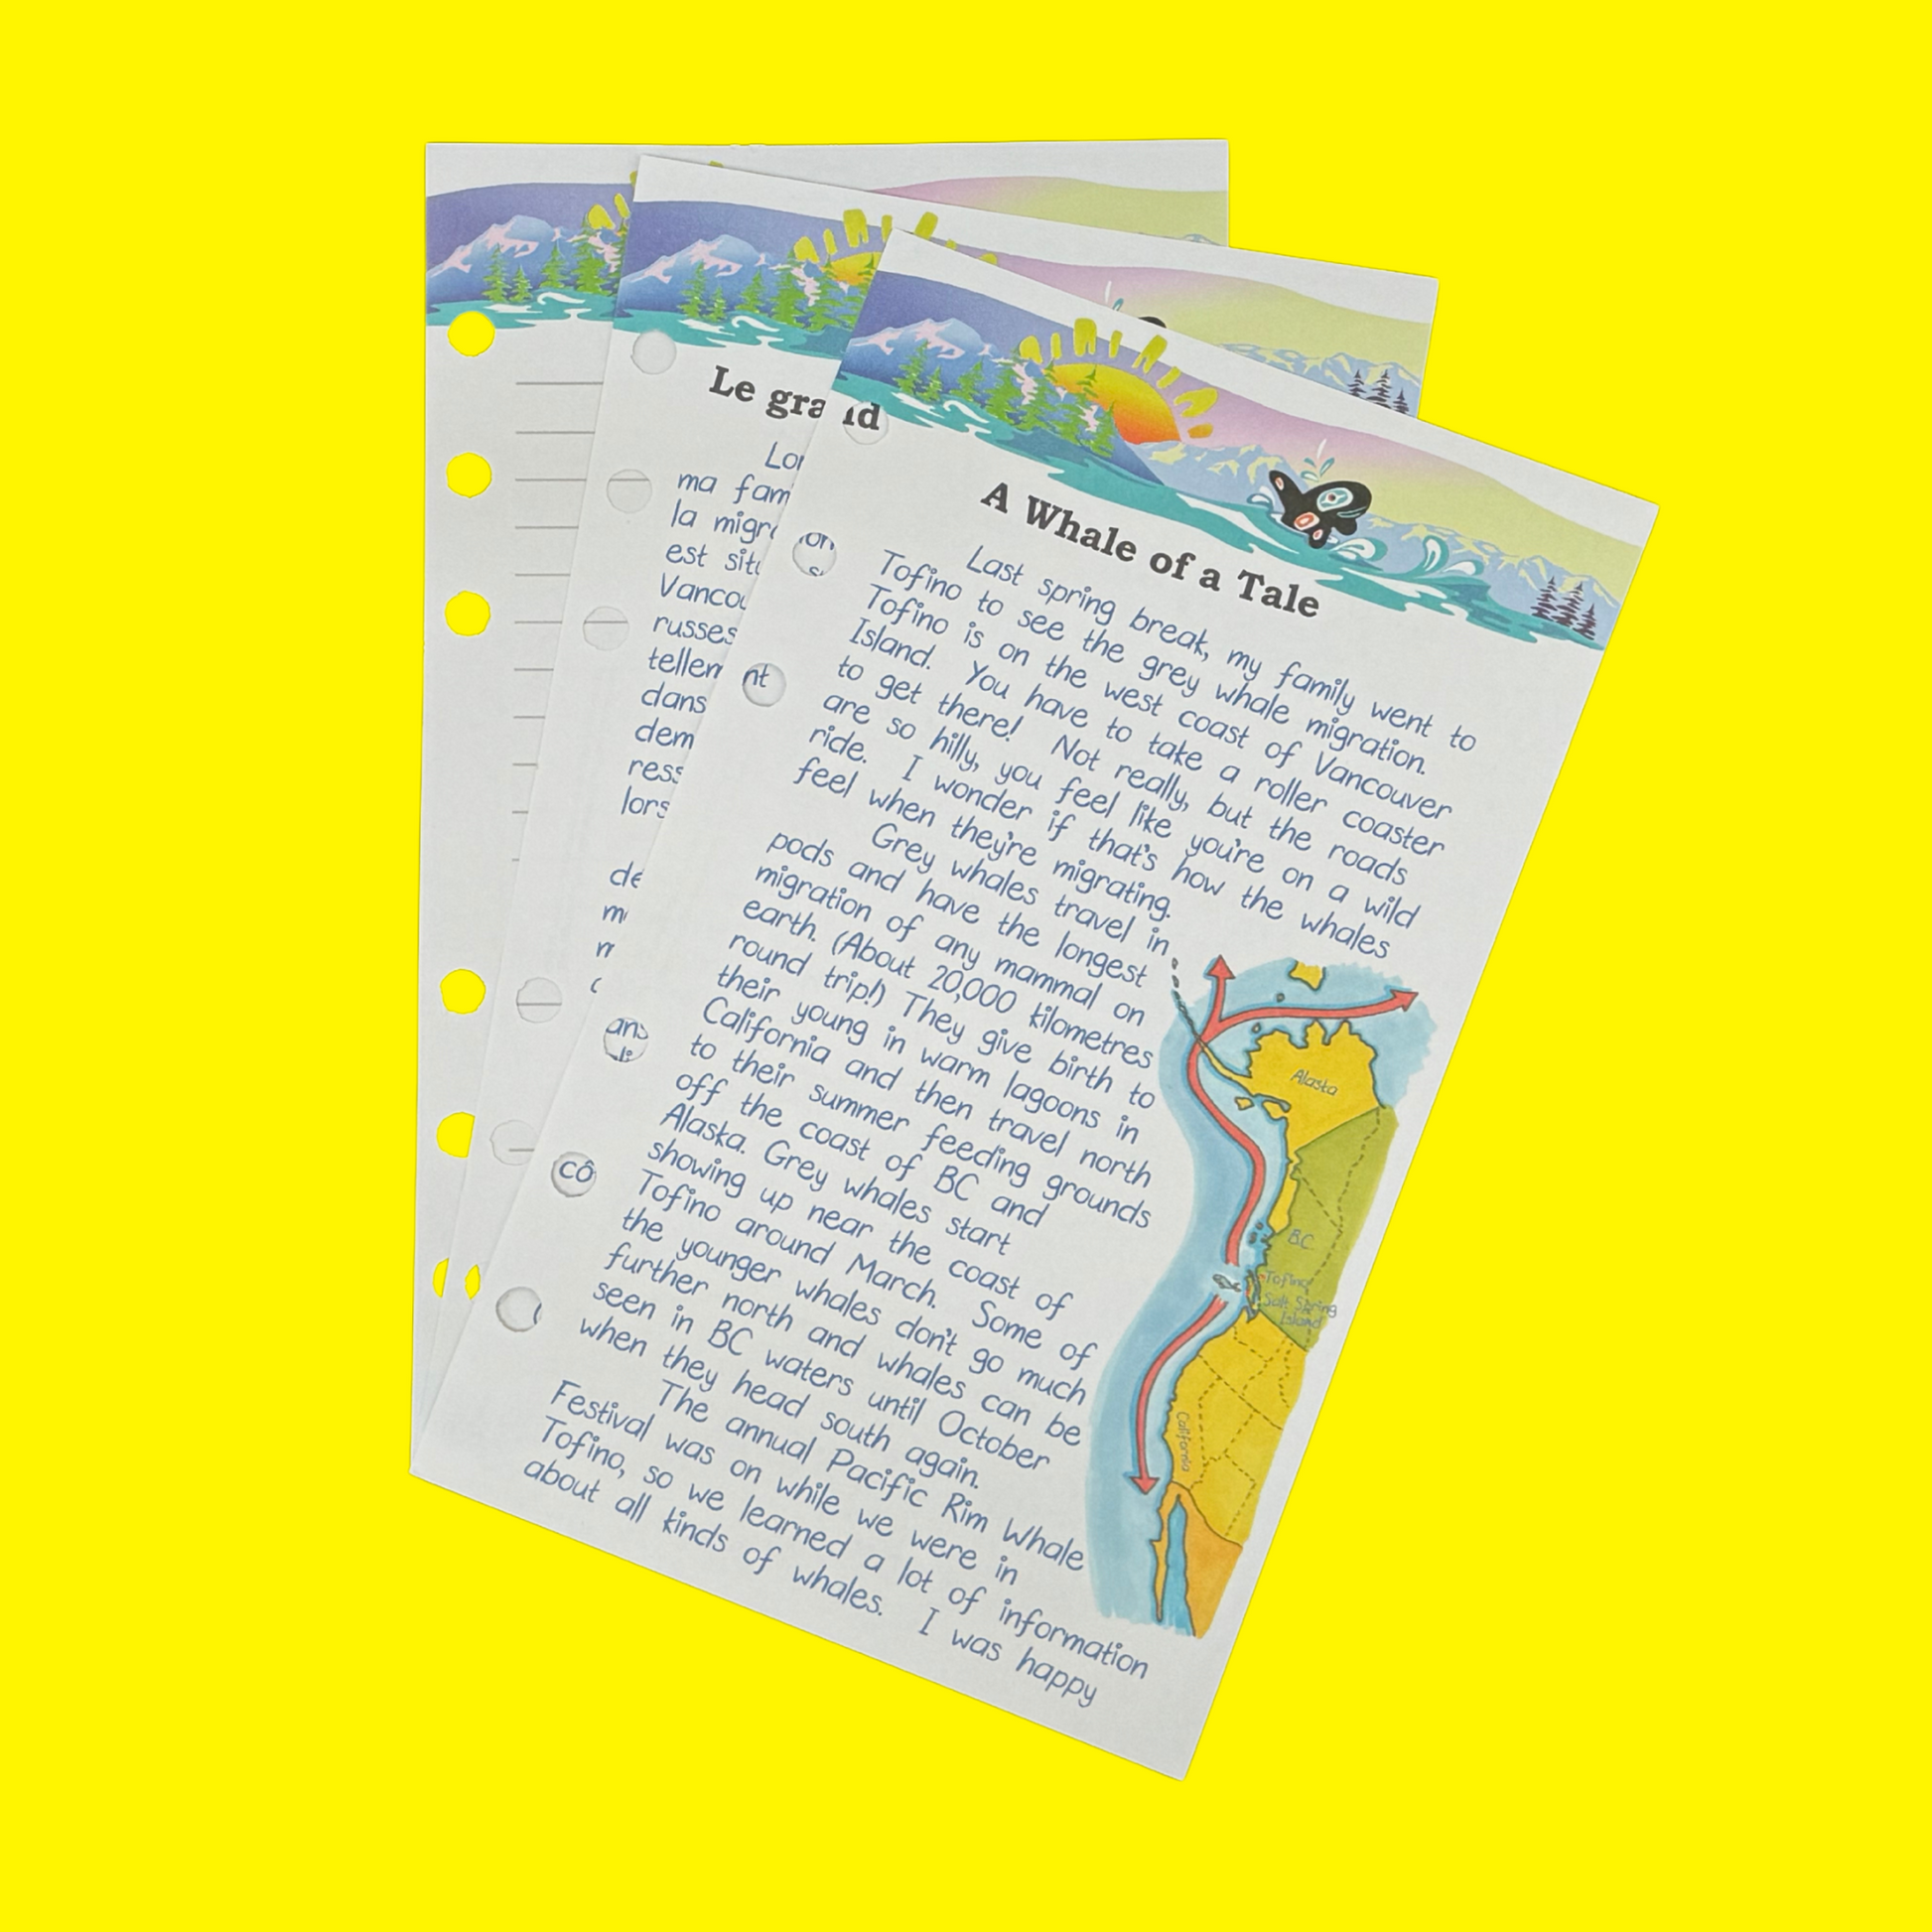 Le grand
ma fam
la migr
est sit
Vancou
russes
tellem
dans
dem
ress
lors
de
A Whale of a Tale
Last spring break, my family went to
Tofino to see the grey whale migration.
Tofino is on the west coast of Vancouver
Island. You have to take a roller coaster
to get there! Not really, but the roads
are so hilly, you feel like you're on a wild
ride. I wonder if that's how the whales
feel when they're migrating.
Grey whales travel in
pods and have the longest
migration of any mammal on
earth. (About 20,000 kilometres
round trip!) They give birth to
their young in warm lagoons in
California and then travel north
to their summer feeding grounds
off the coast of BC and
Alaska. Grey whales start
showing up near the coast of
Tofino around March. Some of
the younger whales don't go much
further north and whales can be
seen in BC waters until October
when they head south again.
The annual Pacific Rim Whale
Festival was on while we were in
Tofino, so we learned a lot of information
about all kinds of whales. I was happy
Alaska
B.C.
Tofino
Salt Spring
Island
California